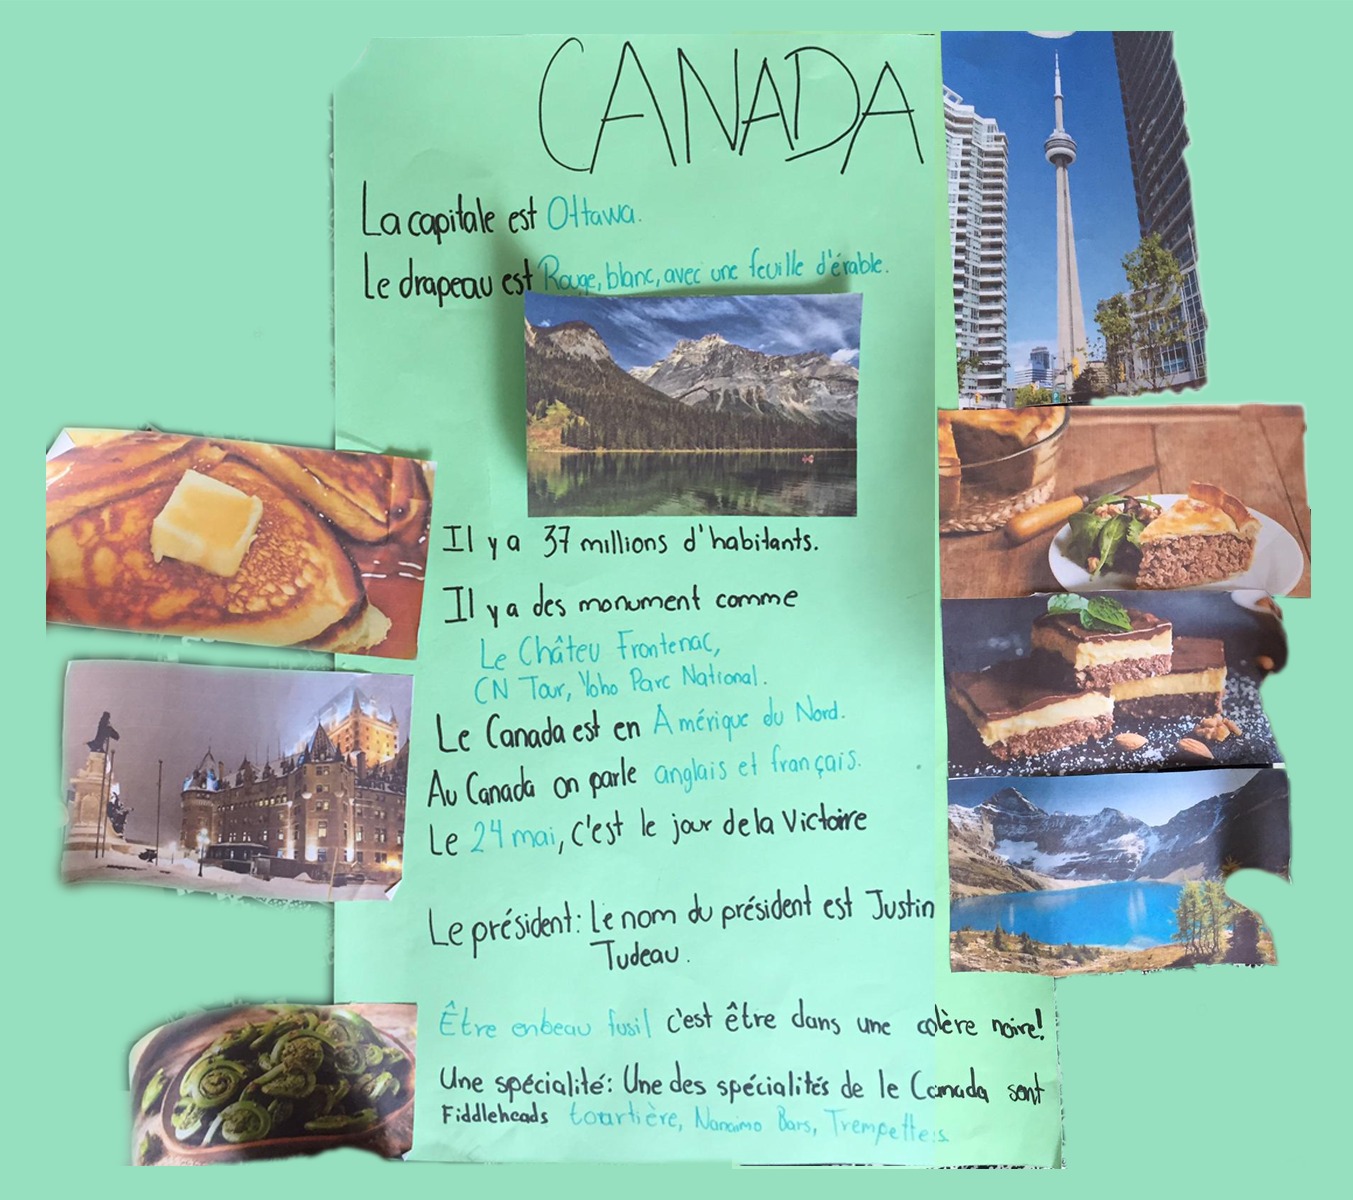 CANADA
La capitale est Ottawa.
Le drapeau est Rouge, blanc, avec une feuille d'érable.
Il y a 37 millions d'habitants.
Il y a des monument comme
Le Châteu Frontenac,
CN Tour, Yoho Parc National.
Le Canada est en Amérique du Nord.
Au Canada on parle anglais et français.
Le 24 mai, c'est le jour de la Victoire
Le président: Le nom du président est Justin
Tudeau.
Être enbeau fusil c'est être dans une colère noire!
Une spécialité: Une des spécialités de le Canada sont
Fiddleheads tourtière, Nanaimo Bars, Trempettes.